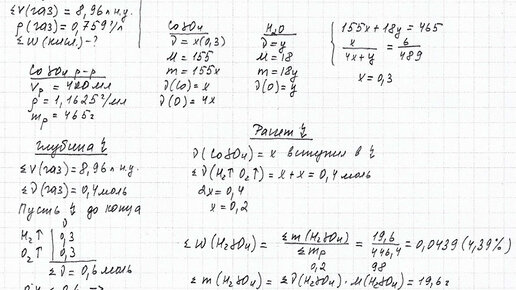 ΣV(газ) = 8,96 л н.у.
ρ(газ) = 0,759 г/л
ΣW(кисл.) - ?
CoSO₄ р-р
Vр = 400 мл
ρ = 1,1625 г/мл
mр = 465 г
CoSO₄
ν = x (0,3)
M = 155
m = 155x
ν(Co) = x
ν(O) = 4x
H₂O
ν = y
M = 18
m = 18y
ν(O) = y
155x + 18y = 465
x / (4x + y) = 6 / 489
x = 0,3
Глубина
ΣV(газ) = 8,96 л н.у.
Σν(газ) = 0,4 моль
Пусть до конца
ν
H₂↑ 0,3
O₂↑ 0,3
Σν = 0,6 моль
Расчет
ν(CoSO₄) = x вступил в
Σν(H₂↑O₂↑) = x + x = 0,4 моль
2x = 0,4
x = 0,2
ΣW(H₂SO₄) = Σm(H₂SO₄) / Σmр = 19,6 / 446,4 = 0,0439 (4,39%)
0,2 98
Σm(H₂SO₄) = Σν(H₂SO₄) · M(H₂SO₄) = 19,6 г